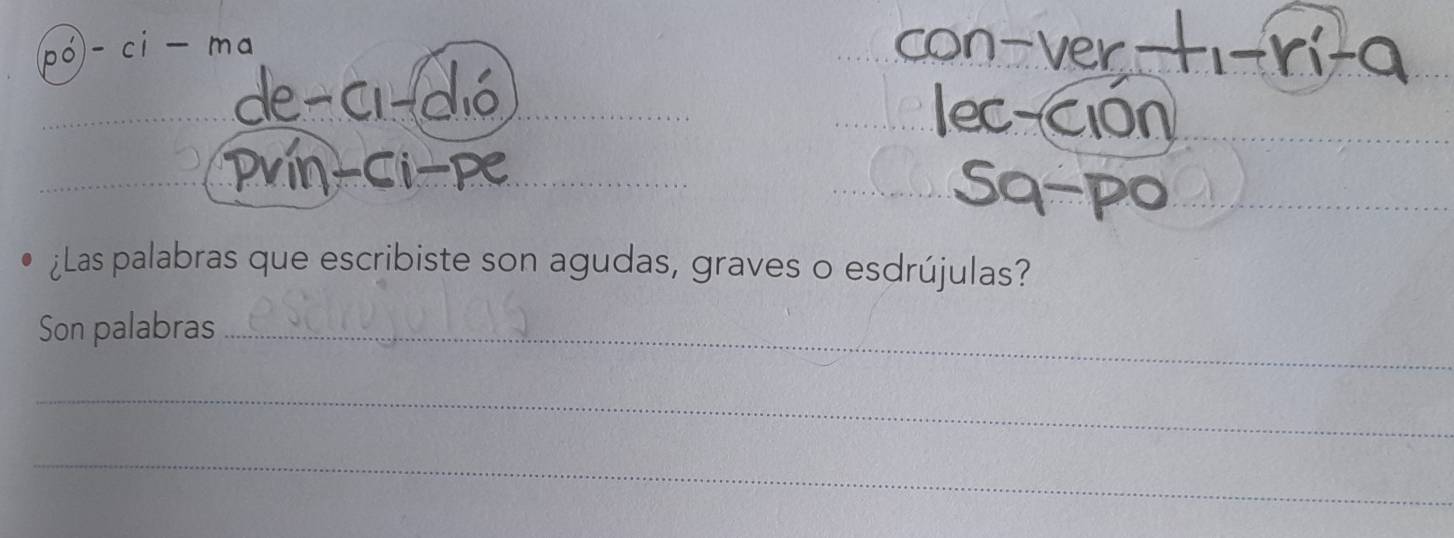 pó - ci - ma
de-ci-dió
prín-ci-pe
con-ver-ti-rí-a
lec-ción
Sa-po
• ¿Las palabras que escribiste son agudas, graves o esdrújulas?
Son palabras esdrujulas